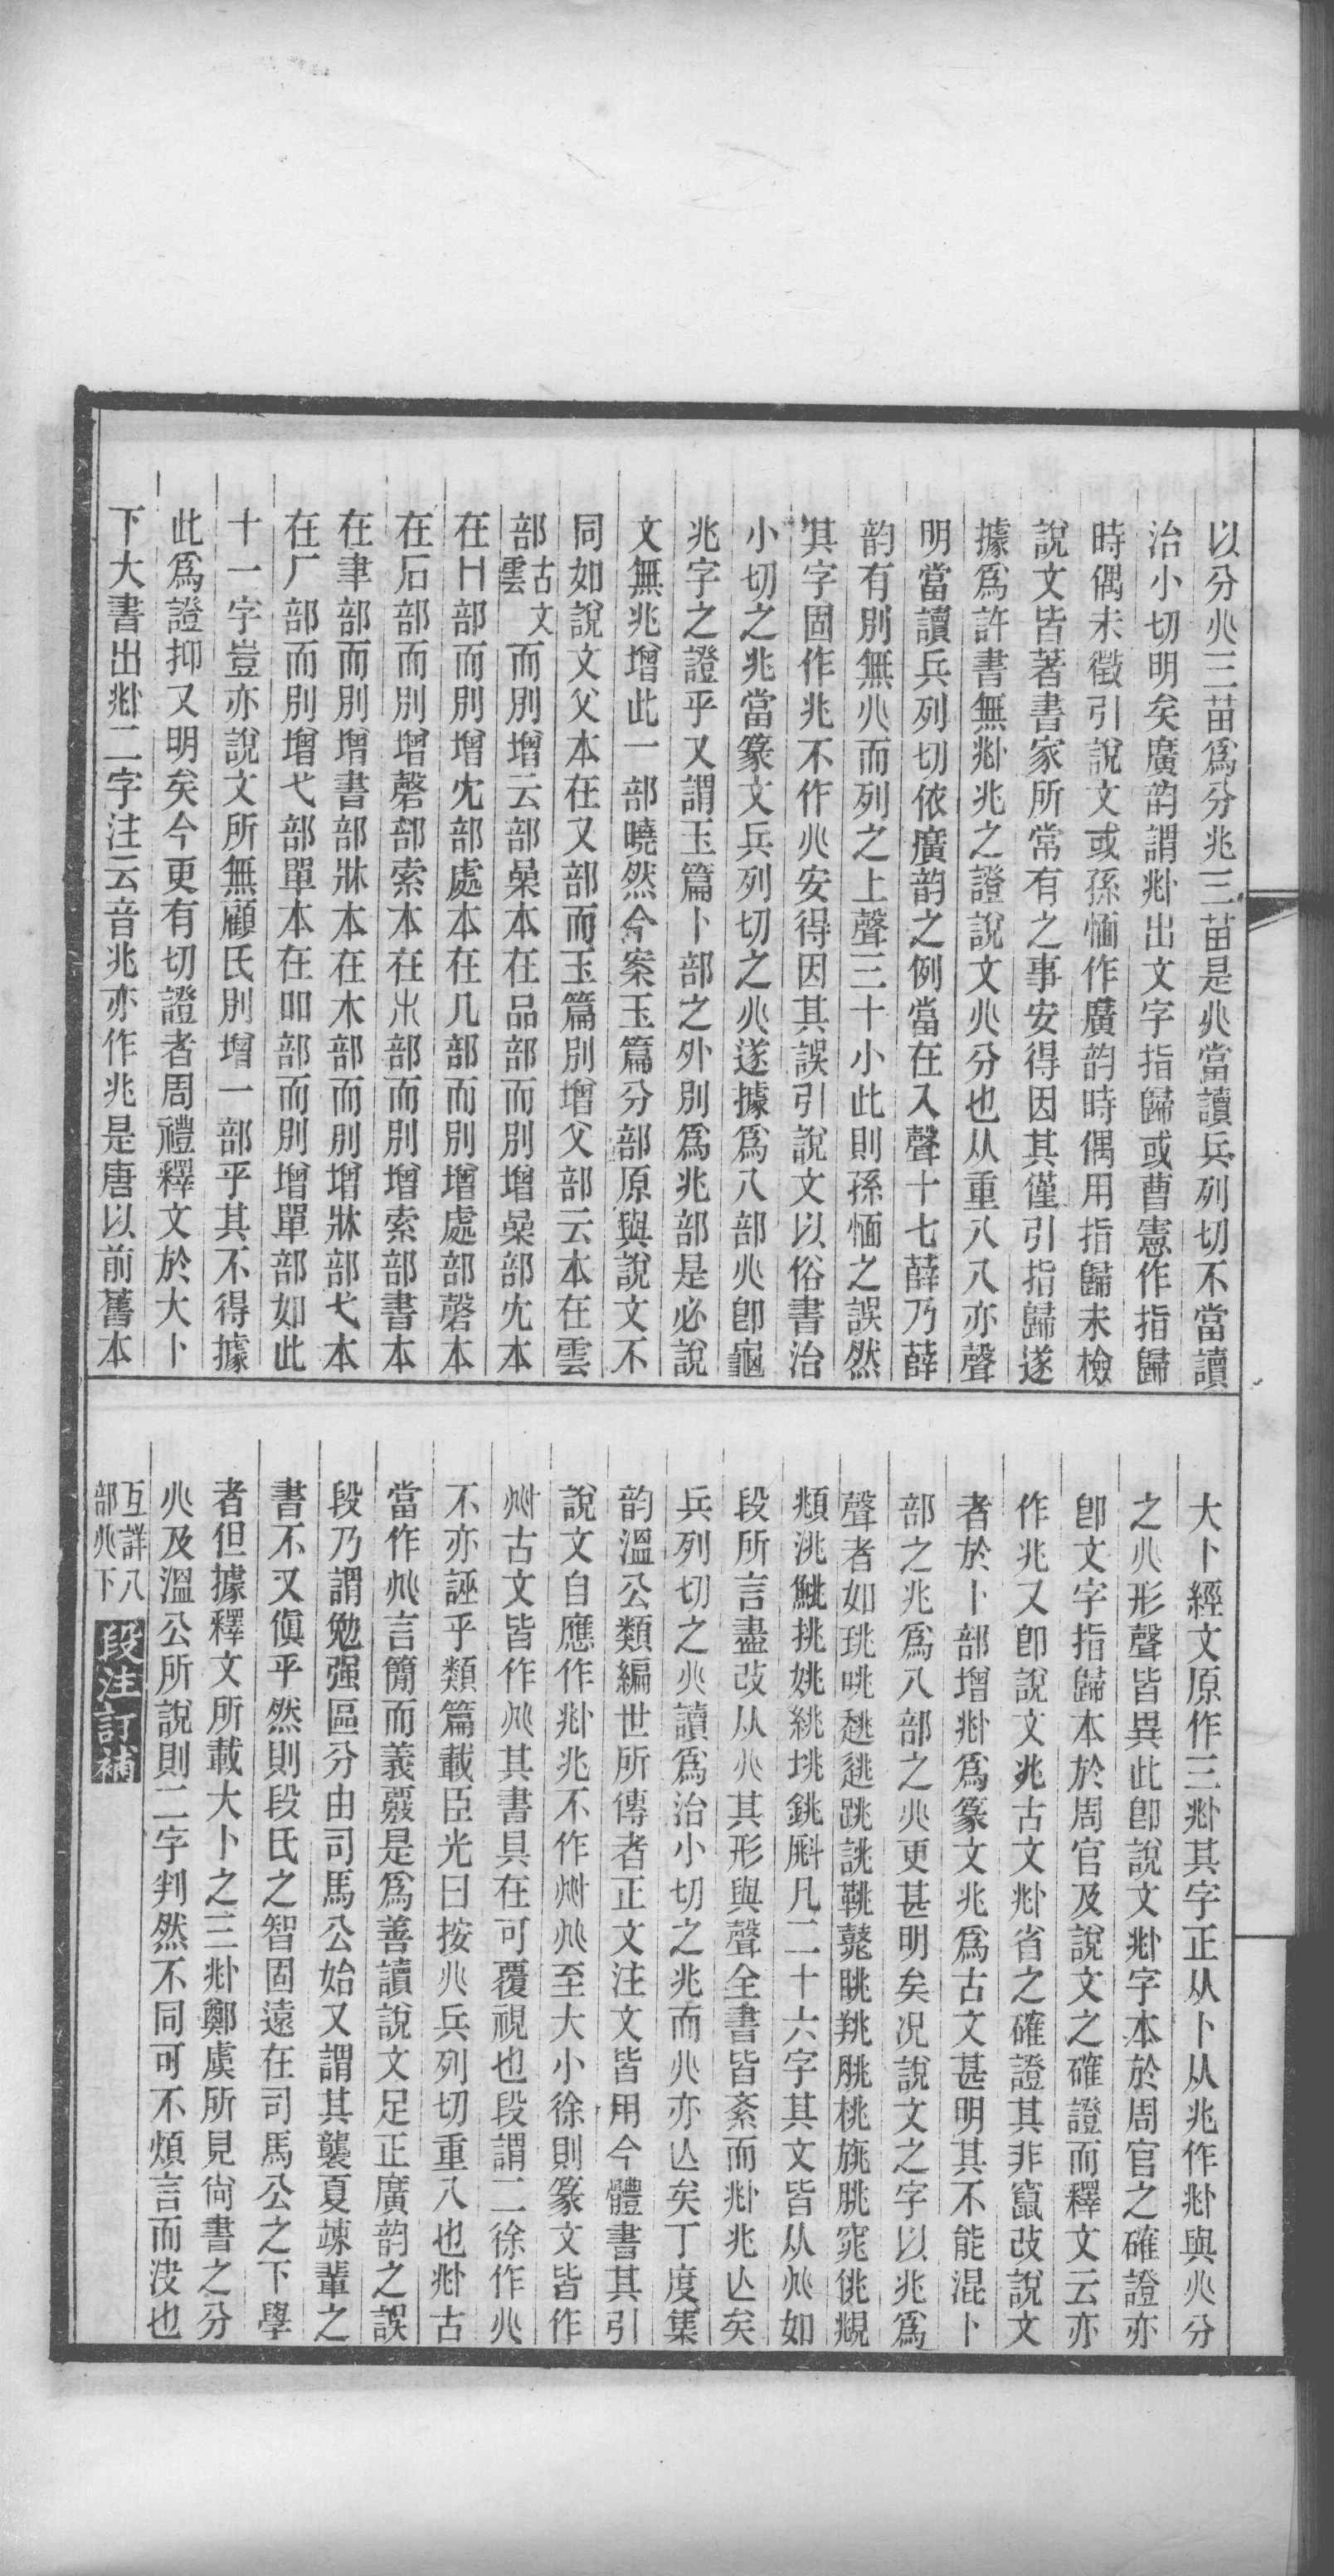 以分㸚三苗爲分兆三苗是㸚當讀兵列切不當讀
治小切明矣廣韵謂𠧞出文字指歸或曹憲作指歸
時偶未徵引說文或孫愐作廣韵時偶用指歸未檢
說文皆著書家所常有之事安得因其僅引指歸遂
據爲許書無𠧞兆之證說文𠔁分也从重八八亦聲
明當讀兵列切依廣韵之例當在入聲十七薛乃薛
韵有別無𠔁而列之上聲三十小此則孫愐之誤然
其字固作兆不作𠔁安得因其誤引說文以俗書治
小切之兆當篆文兵列切之𠔁遂據爲八部𠔁卽龜
兆字之證乎又謂玉篇卜部之外別爲兆部是必說
文無兆增此一部曉然今案玉篇分部原與說文不
同如說文父本在又部而玉篇別增父部云本在雲
部古文雲而別增云部喿本在品部而別增喿部冘本
在冂部而別增冘部處本在几部而別增處部磬本
在石部而別增磬部索本在𣎵部而別增索部書本
在聿部而別增書部牀本在木部而別增牀部弋本
在厂部而別增弋部單本在吅部而別增單部如此
十一字豈亦說文所無顧氏別增一部乎其不得據
此爲證抑又明矣今更有切證者周禮釋文於大卜
下大書出𠧞二字注云音兆亦作兆是唐以前舊本
大卜經文原作三𠧞其字正从卜从兆作𠧞與𠔁分
之𠔁形聲皆異此卽說文𠧞字本於周官之確證亦
卽文字指歸本於周官及說文之確證而釋文云亦
作兆又卽說文兆古文𠧞省之確證其非竄改說文
者於卜部增𠧞爲篆文兆爲古文甚明其不能混卜
部之兆爲八部之𠔁更甚明矣况說文之字以兆爲
聲者如珧咷趒逃跳誂鞉鼗眺羓朓桃旐脁窕佻覜
頫洮鮡挑姚絩垗銚㪷凡二十六字其文皆从𠧞如
段所言盡改从𠔁其形與聲全書皆紊而𠧞兆亾矣
兵列切之𠔁讀爲治小切之兆而𠔁亦亾矣丁度集
韵溫公類編世所傳者正文注文皆用今體書其引
說文自應作𠧞兆不作𠧞𠔁至大小徐則篆文皆作
𠧞古文皆作兆其書具在可覆視也段謂二徐作𠔁
不亦誣乎類篇載臣光曰按𠔁兵列切重八也𠧞古
當作兆言簡而義覈是爲善讀說文足正廣韵之誤
段乃謂勉强區分由司馬公始又謂其襲夏竦輩之
書不又傎乎然則段氏之智固遠在司馬公之下學
者但據釋文所載大卜之三𠧞鄭虞所見尙書之分
𠔁及溫公所說則二字判然不同可不煩言而決也
互詳八部𠔁下段注訂補